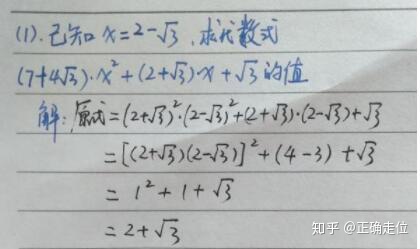 (1).已知 x=2-√3,求代数式
(7+4√3)·x²+(2+√3)·x+√3的值
解:原式=(2+√3)²·(2-√3)²+(2+√3)·(2-√3)+√3
=[(2+√3)(2-√3)]²+(4-3)+√3
= 1²+1+√3
=2+√3
知乎 @正确走位